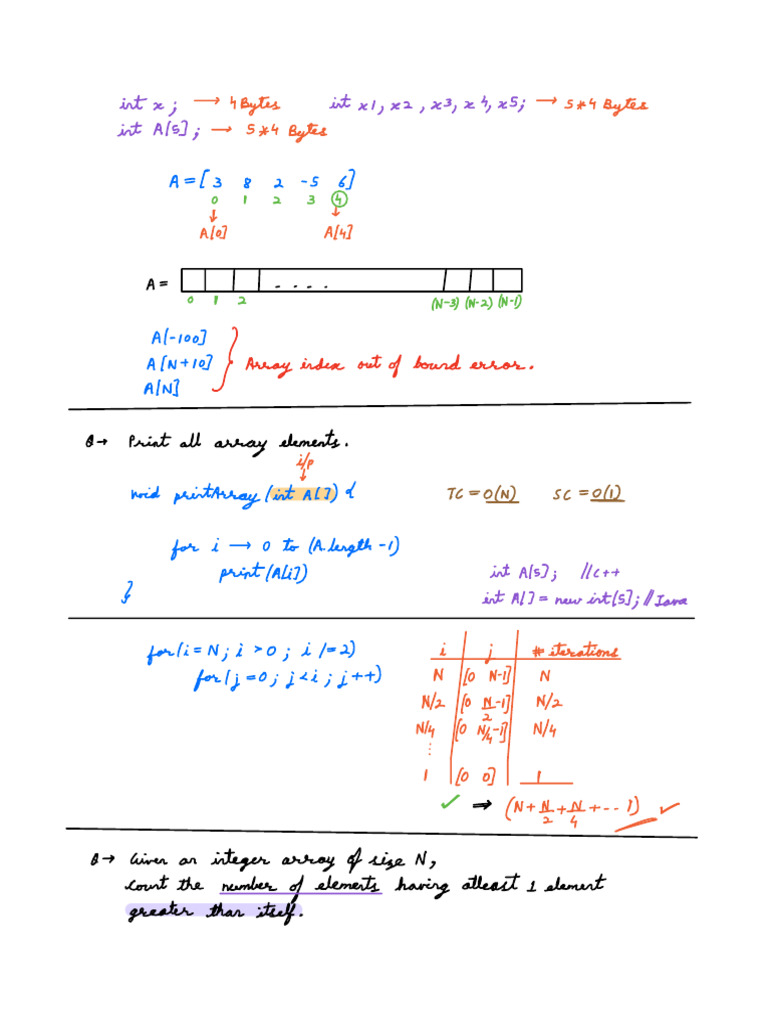 int x; → 4 Bytes int x1, x2, x3, x4, x5; → 5*4 Bytes
int A[5]; → 5*4 Bytes
A = [ 3 8 2 -5 6]
0 1 2 3 4
A[0] A[4]
A =
. . . .
0 1 2 (N-3) (N-2) (N-1)
A[-100]
A[N+10] } Array index out of bound error.
A[N]
Q→ Print all array elements.
i/p
void printArray (int A[]) { TC = O(N) SC = O(1)
for i → 0 to (A.length -1)
print(A[i]) int A[5]; //C++
} int A[] = new int[5]; //Java
for(i=N; i>0; i/=2) i j # iterations
for(j=0; j<i; j++) N [0 N-1] N
N/2 [0 N/2 -1] N/2
N/4 [0 N/4 -1] N/4
⋮
1 [0 0] 1
✓ ⇒ (N + N/2 + N/4 + - - 1) ✓
Q→ Given an integer array of size N,
count the number of elements having atleast 1 element
greater than itself.